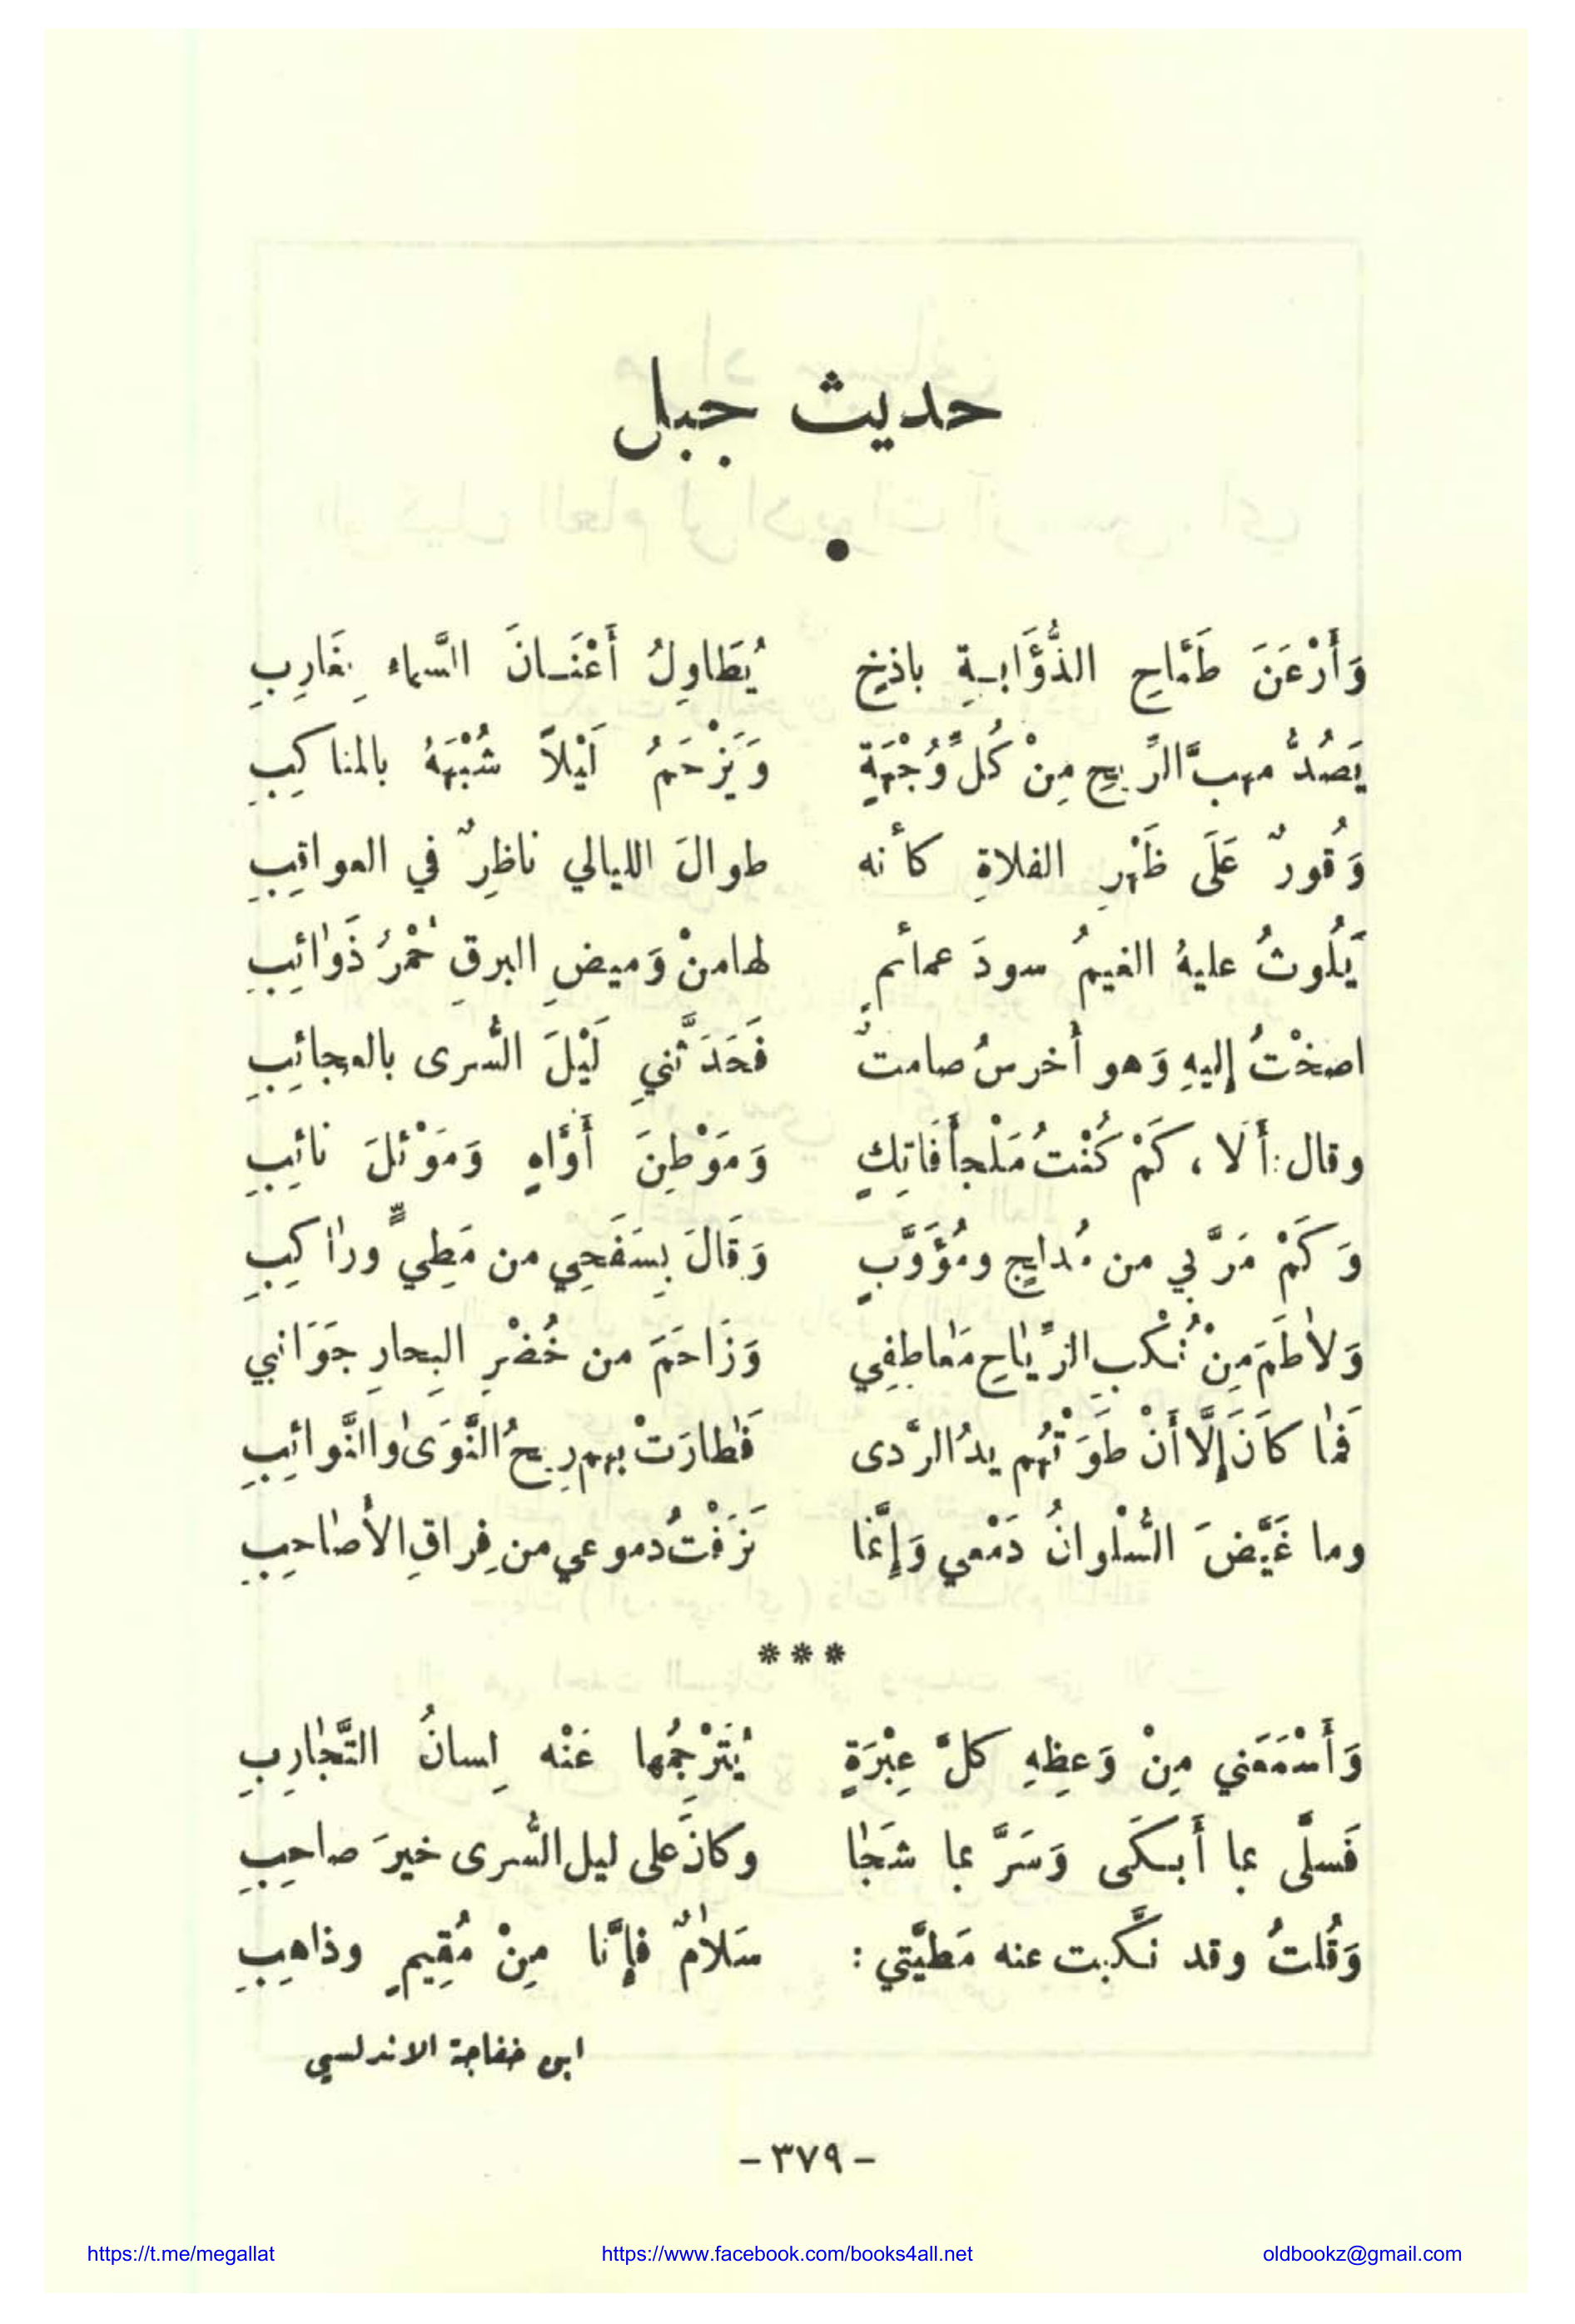 حديث جبل
●
وَأَرْعَنَ طَمَّاحِ الذُّؤَابـةِ باذِخِ يُطَاوِلُ أَعْنَـانَ السَّماءِ بِغَارِبِ
يَصُدُّ مهبَّ الرِّيحِ مِنْ كُلِّ وُجْهَةٍ وَيَزْحَمُ لَيْلاً شُهْبَهُ بالمناكِبِ
وَقُورٌ عَلَى ظَهْرِ الفلاةِ كأنه طوالَ الليالي ناظِرٌ في العواقِبِ
يَلُوثُ عليهُ الغيمُ سودَ عمائم لها منْ وَميضِ البرقِ حُمْرُ ذَوَائِبِ
اصخْتُ إليهِ وَهو أخرسُ صامتٌ فَحَدَثَّنيِ لَيْلَ السُّرى بالعجائِبِ
وقال: أَلَا ، كَمْ كُنْتُ مَلْجأَ فَاتِكٍ وَمَوْطِنَ أَوَّاهٍ وَمَوْئلَ تائِبِ
وَكَمْ مَرَّ بي من مُدلِجٍ ومُؤَوَّبٍ وَقَالَ بِسَفَحِي من مَطِيٍّ وراكِبِ
وَلاطَمَ مِنْ نُكْبِ الرِّيَاحِ مَعَاطِفِي وَزَاحَمَ من خُضْرِ البِحارِ جَوَانبي
فَما كاَنَ إلَّا أَنْ طَوَتْهُم يدُ الرَّدى فَطارَتْ بهم رِيحُ النَّوَى والنَّوائِبِ
وما غَيَّضَ السُّلْوانُ دَمْعي وَإِنَّما نَزَفْتُ دموعي من فِراقِ الأَصاحِبِ
***
وَأَسْمَعَني مِنْ وَعظِهِ كلَّ عِبْرَةٍ يُتَرْجِمُها عَنْه لِسانُ التَّجَارِبِ
فَسلَّى بما أَبـكَى وَسَرَّ بما شَجَا وكانَ على ليل السُّرى خيرَ صاحِبِ
وَقُلتُ وقد نكَّبت عنه مَطيَّتي : سَلامٌ فإِنَّا مِنْ مُقِيمٍ وذاهِبِ
ابن خفاجة الاندلسي
- ٣٧٩ -
https://t.me/megallat https://www.facebook.com/books4all.net oldbookz@gmail.com